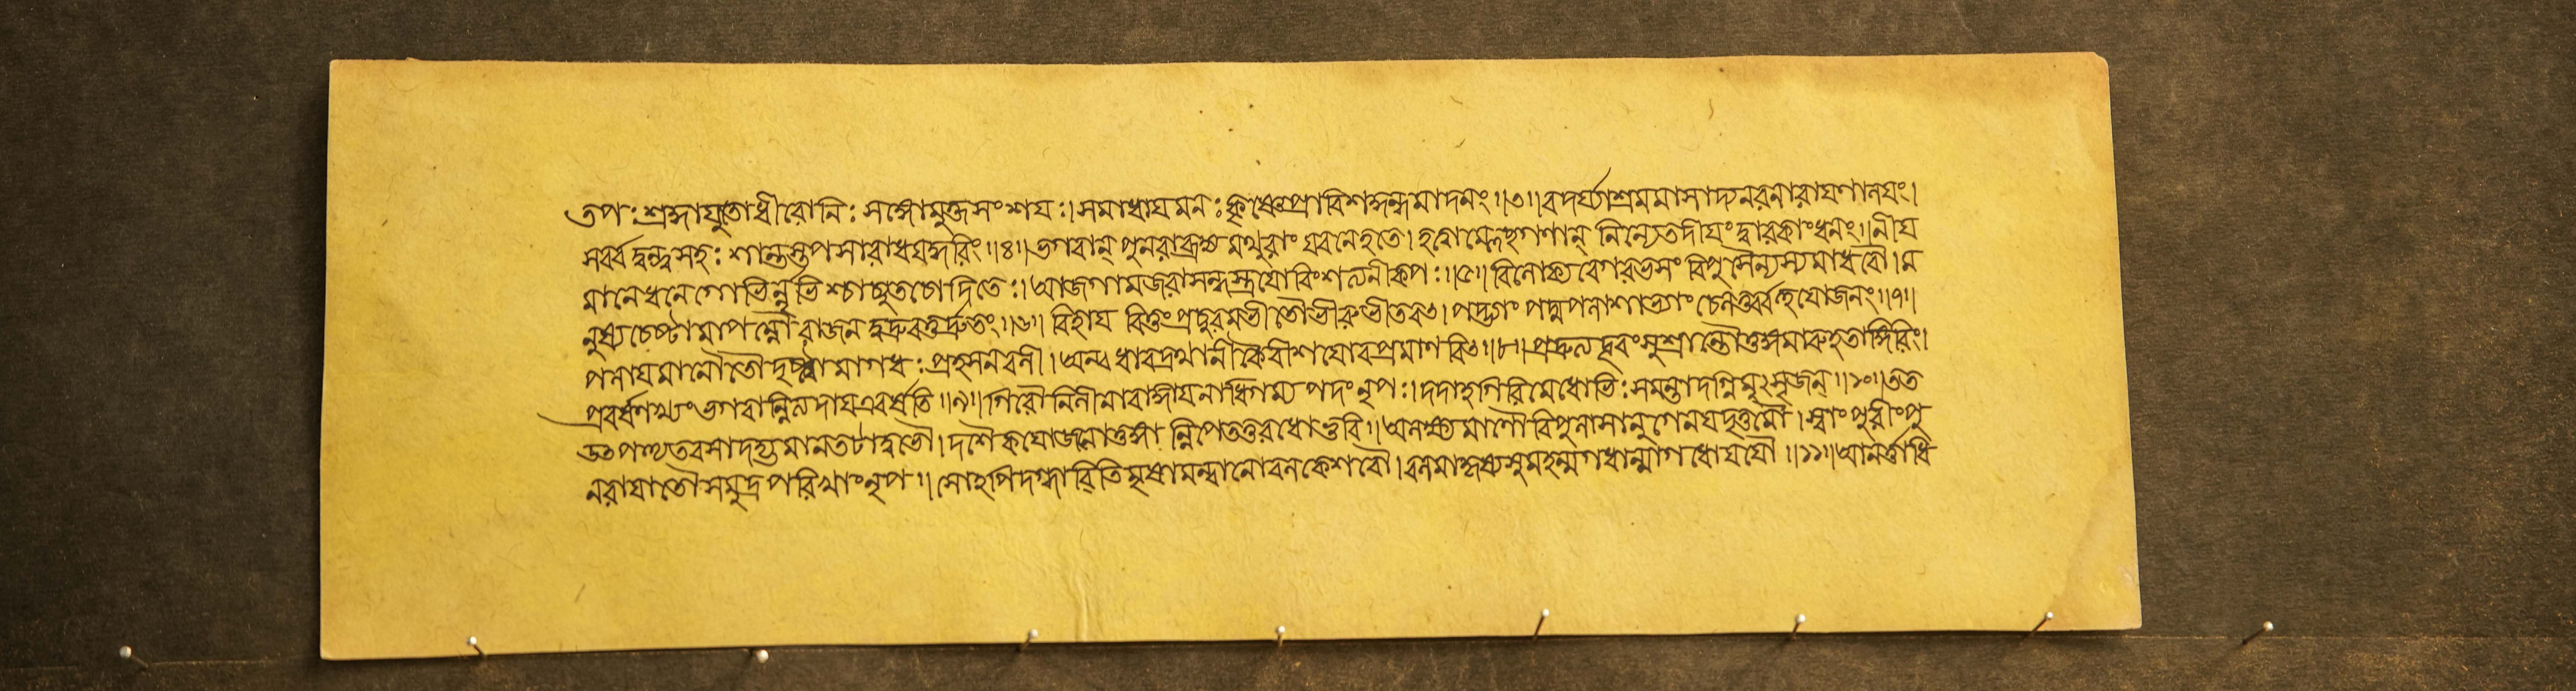 তপঃশ্রদ্ধাযুতোধীরোনিঃসঙ্গোমুক্তসংশযঃ।সমাধাযমনঃকৃষ্ণেপ্রাবিশদ্গন্ধমাদনং॥৩॥বদর্য্যাশ্রমমাসাদ্যনরনারাযণালযং।
সর্ব্বদ্বন্দ্বসহঃশান্তস্তপসারাধযদ্ধরিং॥৪॥ভগবান্ পুনরাব্রজ্যমথুরাং যবনেহতে। হত্বাম্লেচ্ছগণান্ নিন্যেতদীযংদ্বারকাংধনং॥নীয
মানেধনেগোভির্নৃভিশ্চাচ্যুতচোদিতৈঃ।আজগামজরাসন্ধস্ত্রযোবিংশত্যনীকপঃ॥৫॥বিলোক্যবেগরভসং রিপুসৈন্যস্যমাধবৌ।ম
নুষ্যচেষ্টামাপন্নৌরাজন দুদ্রুবতুর্দ্রুতং॥৬॥ বিহায বিত্তংপ্রচুরমভীতৌভীরুভীতবৎ।পদ্ভ্যাং পদ্মপলাশাভ্যাং চেলতুর্ব্বহুযোজনং॥৭॥
পলাযমানৌতৌদৃষ্ট্বামাগধঃপ্রহসনবলী।অন্বধাবদ্রথানীকৈরীশযোরপ্রমাণবিৎ॥৮॥প্রদ্রুত্যদূরংসুশ্রান্তৌতুঙ্গমারুহতাঙ্গিরিং।
প্রবর্ষণাখ্যংভগবান্নিত্যদাযত্রবর্ষতি॥৯॥গিরৌনিলীনাবাজ্ঞাযনাধিগম্যপদংনৃপঃ।দদাহগিরিমেধোভিঃসমন্তাদগ্নিমুৎসৃজন্॥১০॥তত
উৎপত্যতরসাদহ্যমানতটাদুভৌ।দশৈকযোজনাতুঙ্গান্নিপেততুরধোভুবি॥অলক্ষ্যমাণৌরিপুনাসানুগেনযদূত্তমৌ।স্বাংপুরীংপু
নরাযাতৌসমুদ্রপরিখাংনৃপ॥সোহপিদগ্ধাবিতিমৃষামন্বানোবলকেশবৌ।বলমাকৃষ্যসুমহন্মগধান্মাগধোযযৌ॥১১॥আনর্ত্তাধি